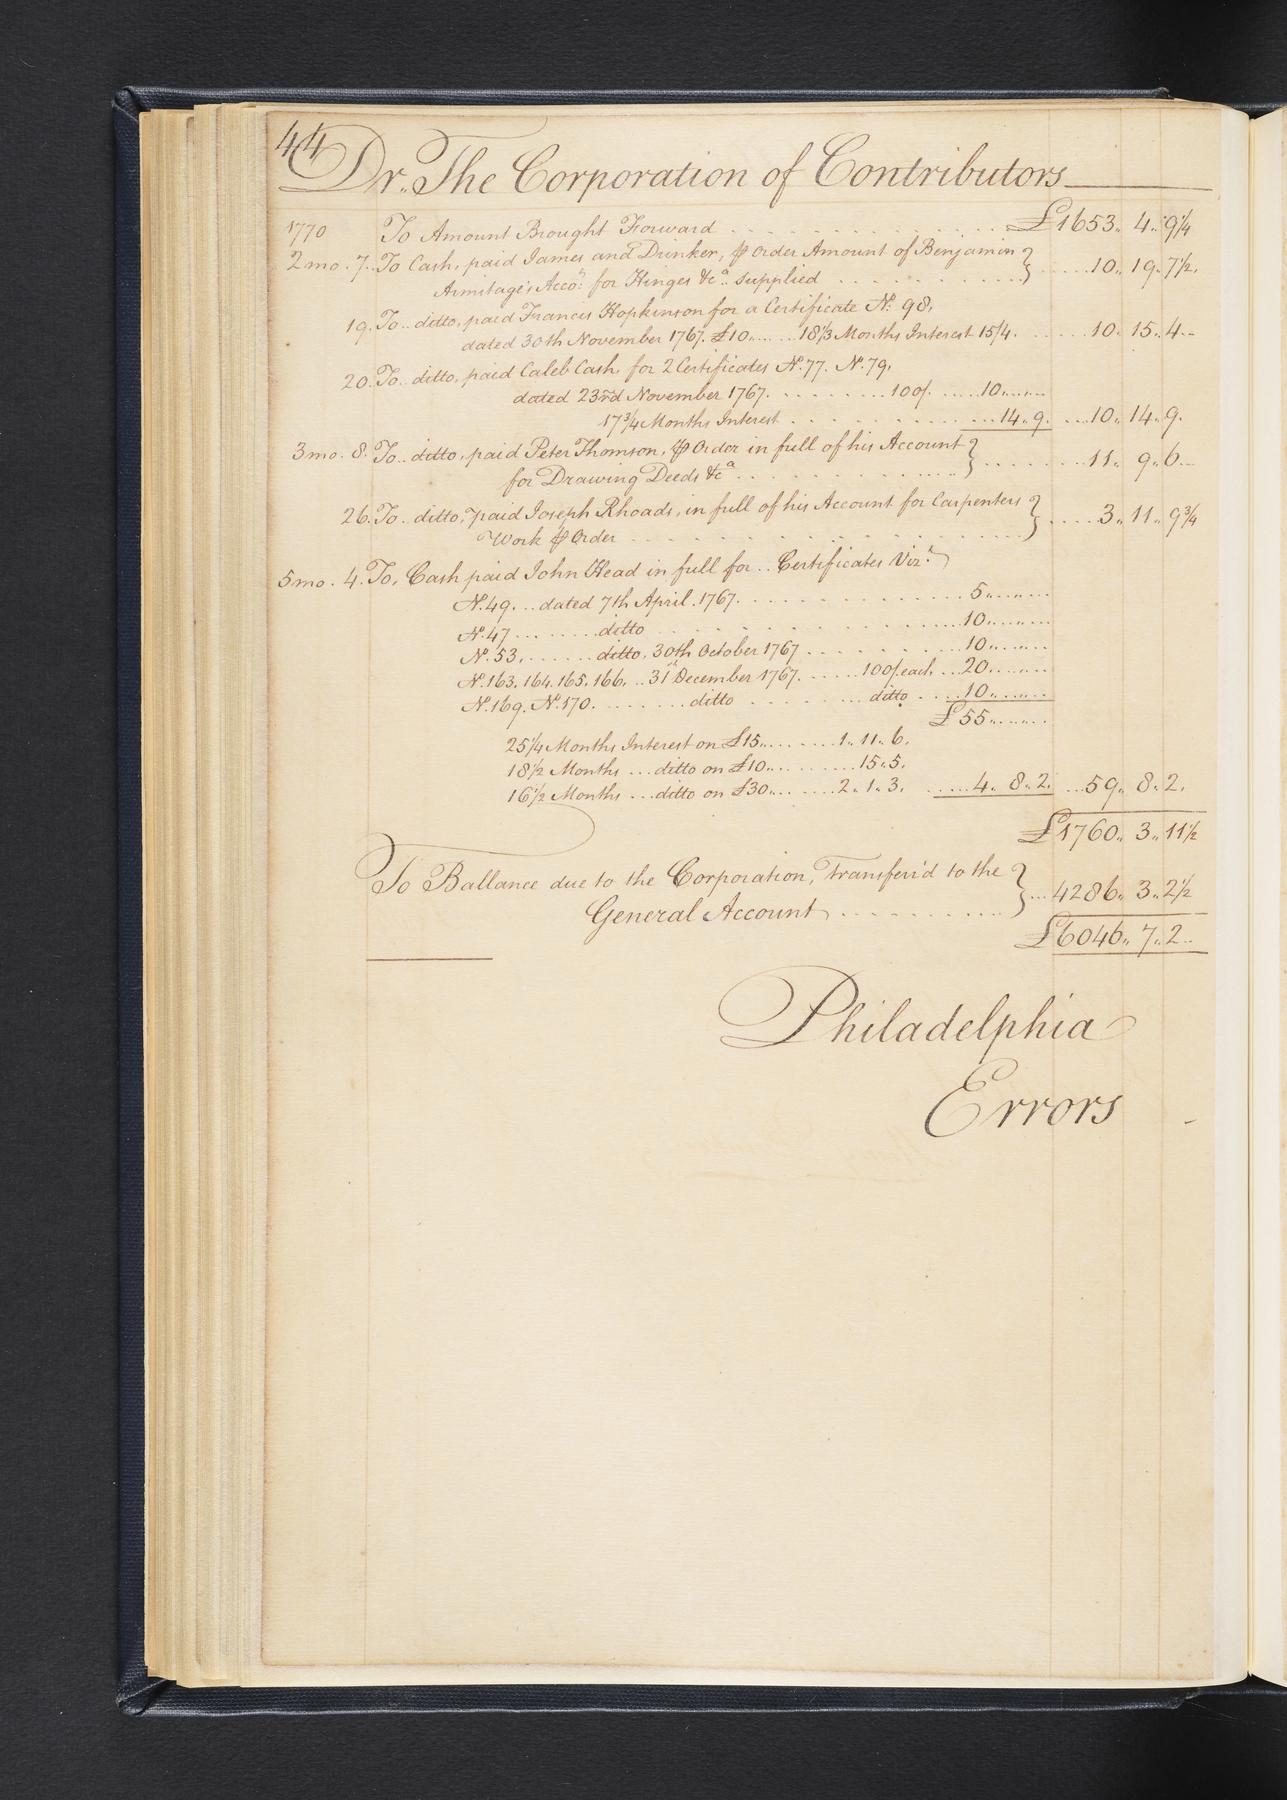 44
Dr.. The Corporation of Contributors
1770 To Amount Brought Forward . . . . . . £1653.. 4.. 9¼
2mo. 7.. To Cash, paid James and Drinker, ⅌ Order Amount of Benjamin
Armitage's Acco.t for Hinges &c.a supplied . . . . . . 10.. 19.. 7½.
19. To.. ditto, paid Francis Hopkinson for a Certificate No. 98.
dated 30th November 1767. £10..... 18⅓ Months Interest 15/4. . . . 10.. 15.. 4..
20. To.. ditto, paid Caleb Cash, for 2 Certificates No. 77. No. 79.
dated 23rd November 1767. . . . . . 100/. . . . 10.......
17¾ Months Interest . . . . . . 14.. 9. . . . 10.. 14.. 9.
3mo. 8. To.. ditto, paid Peter Thomson, ⅌ Order in full of his Account
for Drawing Deeds &c.a . . . . . . 11.. 9.. 6..
26. To.. ditto, paid Joseph Rhoads, in full of his Account for Carpenters
Work ⅌ Order . . . . . . 3.. 11.. 9¾
5mo. 4. To, Cash paid John Head in full for.. Certificates Viz.t
No. 49. .. dated 7th April. 1767. . . . . . 5.......
No. 47 . . . . . ditto . . . . . . 10.......
No. 53. . . . . . ditto. 30th October 1767 . . . . . 10.......
No. 163. 164. 165. 166. .. 31st December 1767. . . . . 100/. each . . . 20.......
No. 169. No. 170. . . . . . ditto . . . . . ditto . . . . 10.......
£55.......
25¼ Months Interest on £15....... 1.. 11.. 6.
18½ Months ... ditto on £10....... 15.. 5.
16½ Months ... ditto on £30....... 2.. 1.. 3. . . . . 4.. 8.. 2. . . . 59.. 8.. 2.
£1760.. 3.. 11½
To Ballance due to the Corporation, Transferr'd to the
General Account . . . . . . 4286.. 3.. 2½
£6046.. 7.. 2..
Philadelphia
Errors